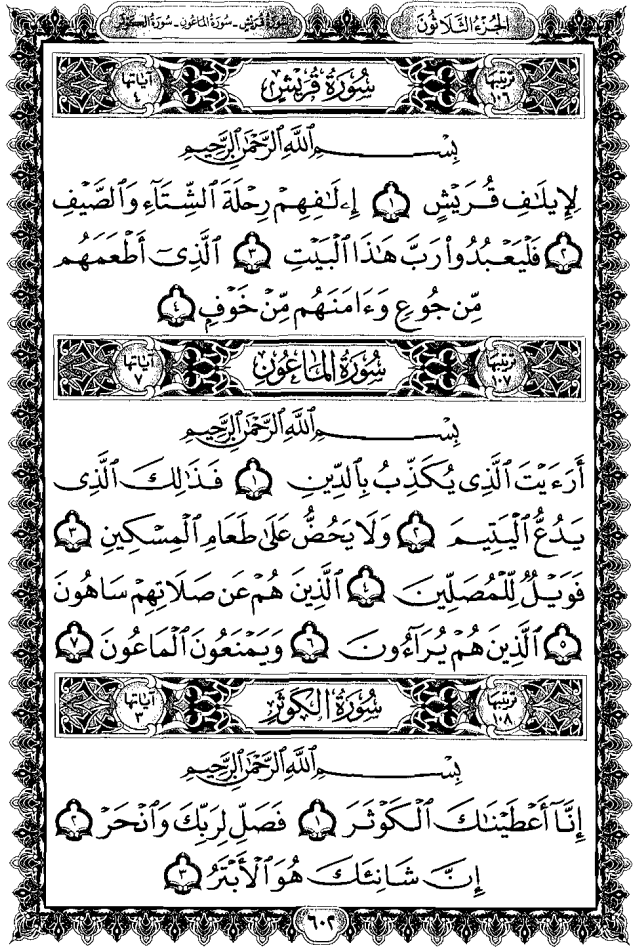 الجزء الثلاثون سورة قريش - سورة الماعون - سورة الكوثر
ترتيبها ١٠٦ سُورَةُ قُرَيْشٍ آياتها ٤
بِسْمِ ٱللَّهِ ٱلرَّحْمَٰنِ ٱلرَّحِيمِ
لِإِيلَٰفِ قُرَيْشٍ ١ إِۦلَٰفِهِمْ رِحْلَةَ ٱلشِّتَآءِ وَٱلصَّيْفِ
٢ فَلْيَعْبُدُوا۟ رَبَّ هَٰذَا ٱلْبَيْتِ ٣ ٱلَّذِىٓ أَطْعَمَهُم
مِّن جُوعٍ وَءَامَنَهُم مِّنْ خَوْفٍۭ ٤
ترتيبها ١٠٧ سُورَةُ المَاعُونِ آياتها ٧
بِسْمِ ٱللَّهِ ٱلرَّحْمَٰنِ ٱلرَّحِيمِ
أَرَءَيْتَ ٱلَّذِى يُكَذِّبُ بِٱلدِّينِ ١ فَذَٰلِكَ ٱلَّذِى
يَدُعُّ ٱلْيَتِيمَ ٢ وَلَا يَحُضُّ عَلَىٰ طَعَامِ ٱلْمِسْكِينِ ٣
فَوَيْلٌ لِّلْمُصَلِّينَ ٤ ٱلَّذِينَ هُمْ عَن صَلَاتِهِمْ سَاهُونَ
٥ ٱلَّذِينَ هُمْ يُرَآءُونَ ٦ وَيَمْنَعُونَ ٱلْمَاعُونَ ٧
ترتيبها ١٠٨ سُورَةُ الكَوْثَرِ آياتها ٣
بِسْمِ ٱللَّهِ ٱلرَّحْمَٰنِ ٱلرَّحِيمِ
إِنَّآ أَعْطَيْنَٰكَ ٱلْكَوْثَرَ ١ فَصَلِّ لِرَبِّكَ وَٱنْحَرْ ٢
إِنَّ شَانِئَكَ هُوَ ٱلْأَبْتَرُ ٣
٦٠٢